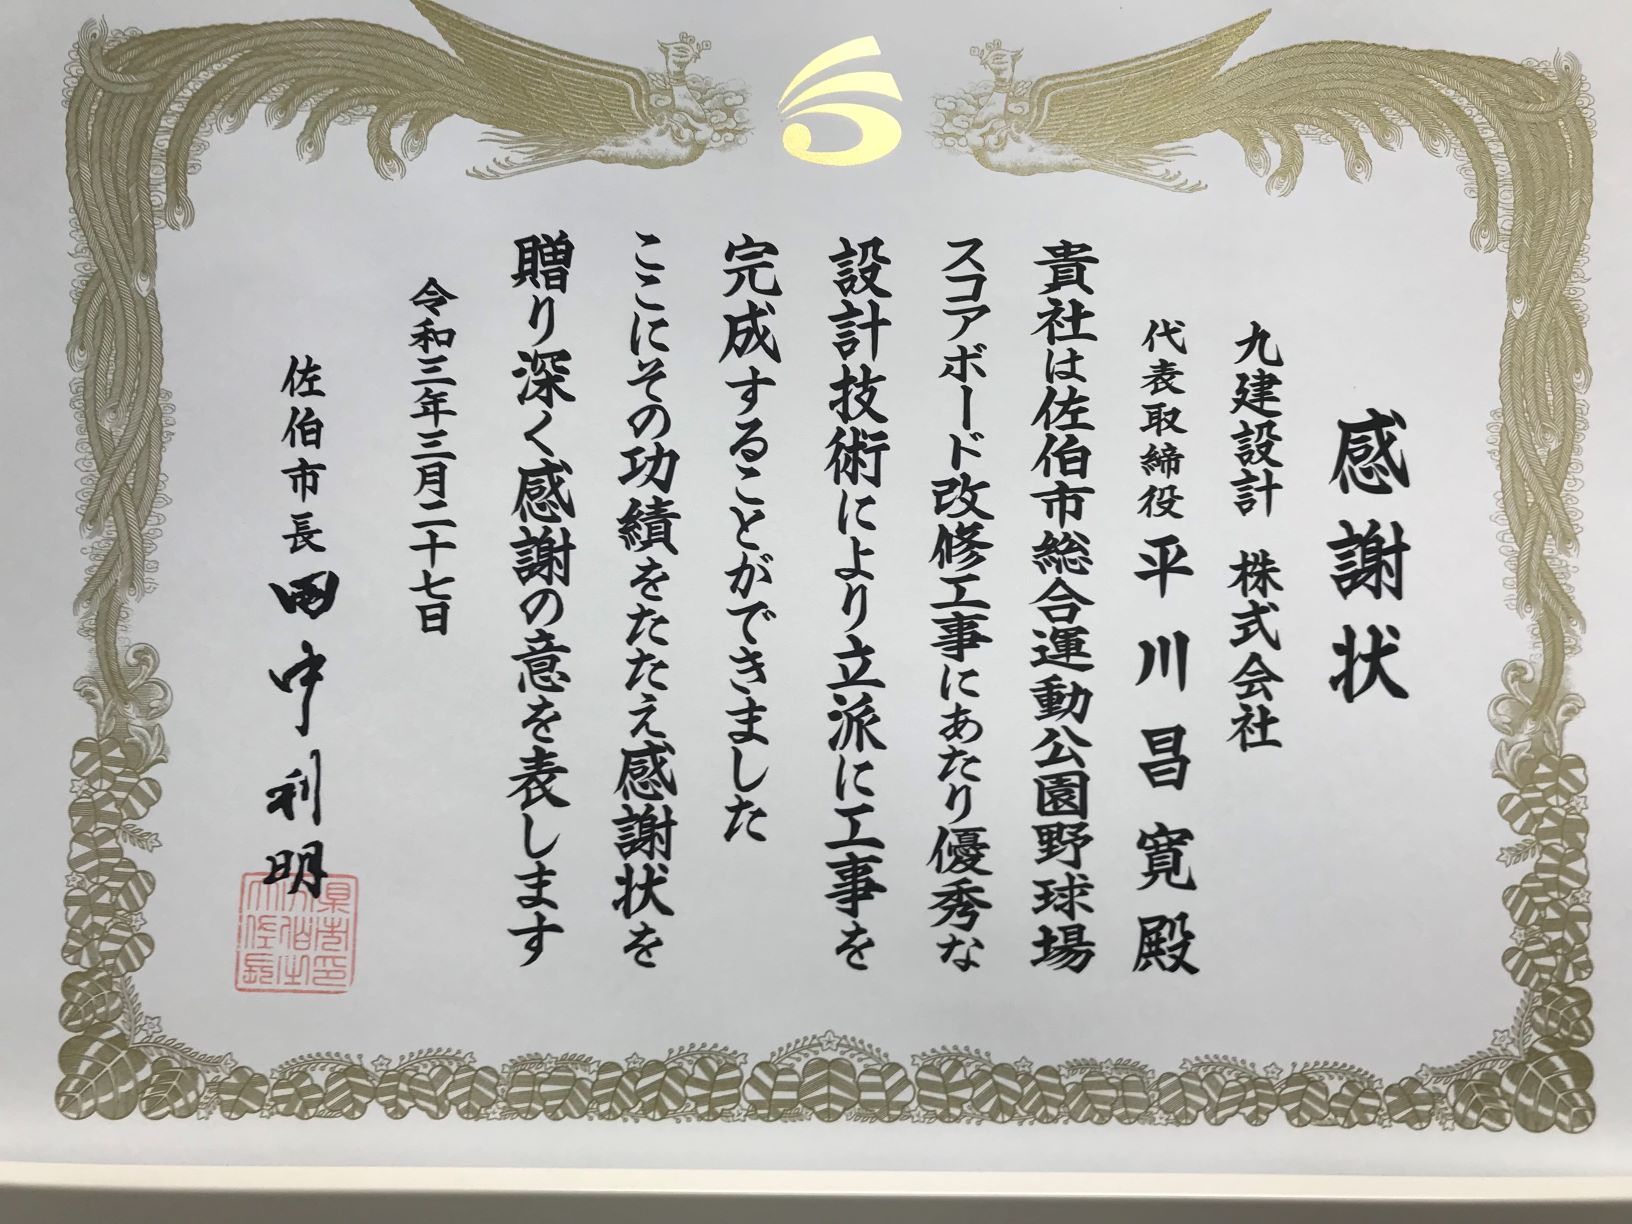 感謝状
九建設計 株式会社
代表取締役 平川昌寛殿
貴社は佐伯市総合運動公園野球場
スコアボード改修工事にあたり優秀な
設計技術により立派に工事を
完成することができました
ここにその功績をたたえ感謝状を
贈り深く感謝の意を表します
令和三年三月二十七日
佐伯市長 田中利明